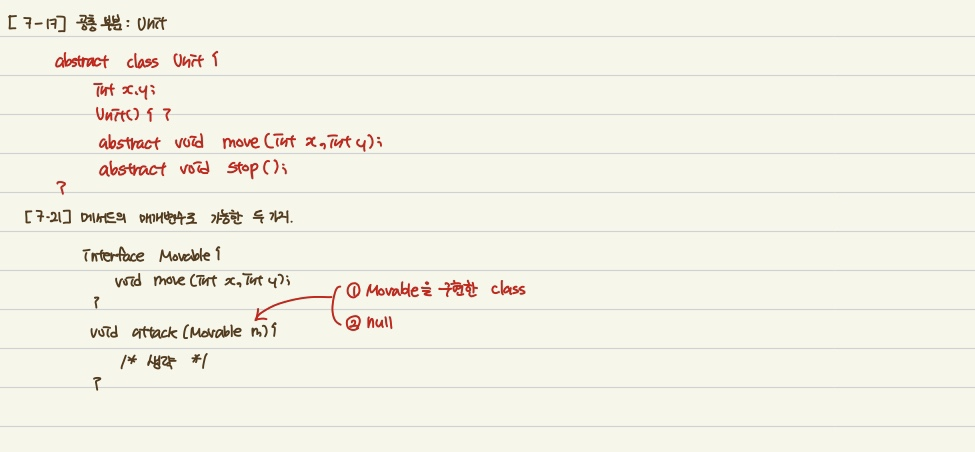 [7-17] 공통 부분 : Unit
abstract class Unit {
int x,y;
Unit() { }
abstract void move(int x, int y);
abstract void stop();
}
[7-21] 메서드의 매개변수로 가능한 두 가지.
interface Movable {
void move (int x, int y);
}
① Movable을 구현한 class
② null
void attack (Movable m) {
/* 생략 */
}